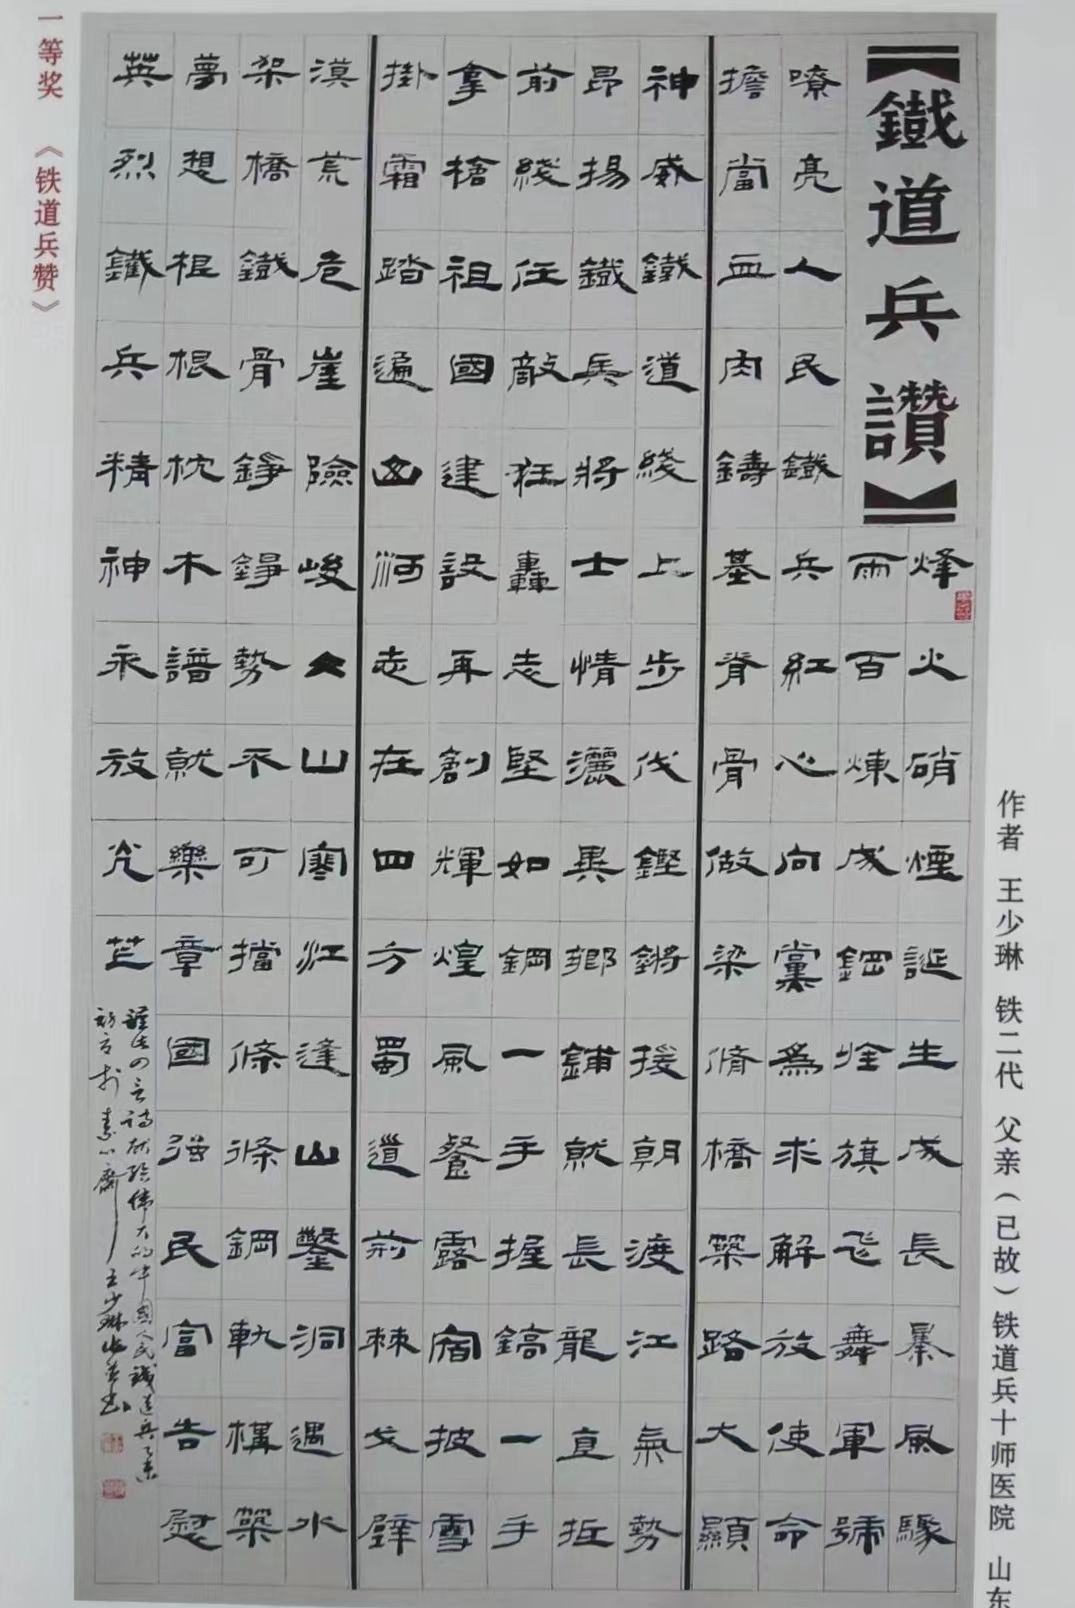 作者 王少琳 铁二代 父亲(已故)铁道兵十师医院 山东
【鐵道兵讚】
烽火硝煙誕生成長暴風驟
雨百煉成鋼旗飛舞軍號
嘹亮人民鐵兵紅心向黨為求解放使命
擔當血肉鑄基脊骨做梁脩橋築路大顯
神威鐵道綫上步伐鏗鏘援朝渡江氣勢
昂揚鐵兵將士情灑異鄉鋪就長龍直抵
前綫任敵狂轟志堅如鋼一手握鎬一手
拿槍祖國建設再創輝煌風餐露宿披雪
掛霜踏遍山河志在四方蜀道荊棘戈壁
漠荒危崖險峻大山寒江逢山鑿洞遇水
架橋鐵骨錚錚勢不可擋條條鋼軌構築
夢想根根枕木譜就樂章國強民富告慰
英烈鐵兵精神永放光芒
四言詩獻給偉大的中國人民鐵道兵
於素心齋 王少琳
一等奖 《铁道兵赞》